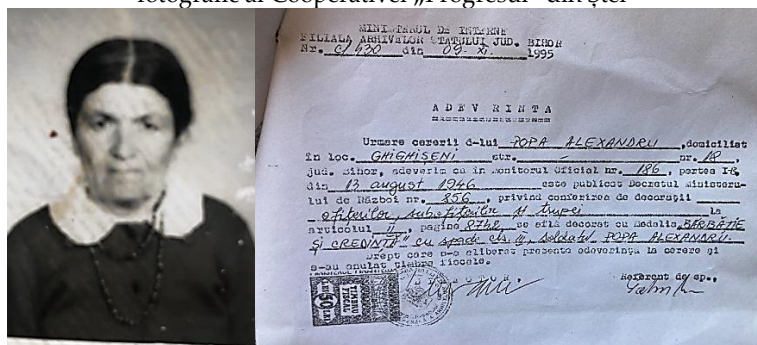 fotografie al Cooperativei „Progresul” din Ștei
MINISTERUL DE INTERNE
FILIALA ARHIVELOR STATULUI JUD. BIHOR
Nr. C/430 din 09-XI. 1995
ADEVERINTA
Urmare cererii d-lui POPA ALEXANDRU, domiciliat
în loc. GHIGHISENI str. - nr. 18,
jud. Bihor, adeverim ca în Monitorul Oficial nr. 186, partea I-a,
din 13 august 1946 este publicat Decretul Ministeru-
lui de Război nr. 856, privind conferirea de decorații
ofițerilor, subofițerilor și trupei la
articolul II, pagina 8742, se află decorat cu Medalia „BĂRBĂȚIE
ȘI CREDINȚĂ" cu spade cls. III, soldatul POPA ALEXANDRU.
Drept care s-a eliberat prezenta adeverință la cerere și
s-au anulat timbre fiscale.
Referent de sp.,
TIMBRU
FISCAL
50 LEI